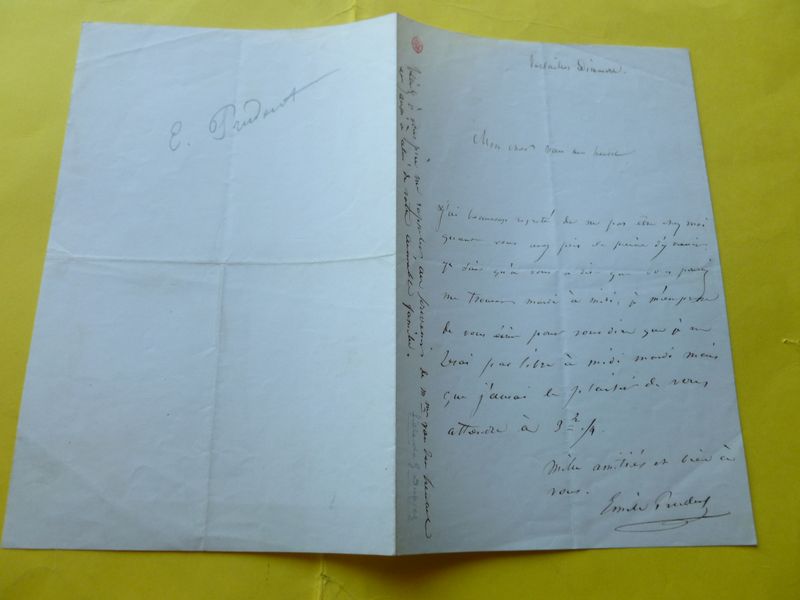 E. Prudent
Dimanche.
Mon cher Van den
J'ai beaucoup regretté de ne pas être chez moi
quand vous avez pris la peine d'y venir
Je sais qu'on vous a dit que vous pouviez
me trouver mardi à midi, je m'empresse
de vous écrire pour vous dire que je ne
serai pas libre à midi mardi mais
que j'aurai le plaisir de vous
attendre à 3 h. 1/4.
Mille amitiés et bien à
vous.
Emile Prudent
à vous prie me rappeler au souvenir de Mme Van den
de votre aimable famille.